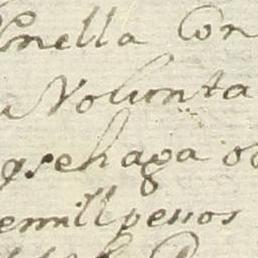 enella Con
Volunta
qsehaga
emill pessos